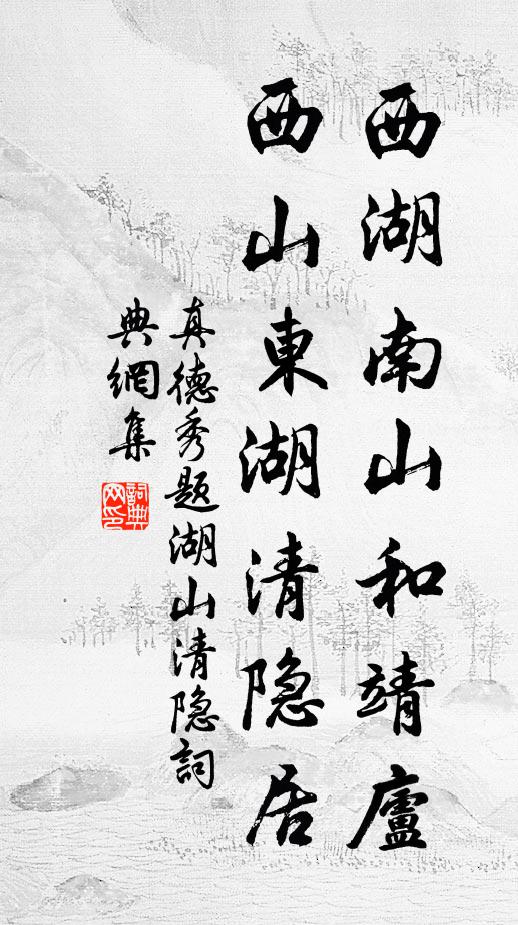 西湖南山和靖廬
西山東湖清隐居
真德秀题湖山清隐詞
典網集
詞典网印